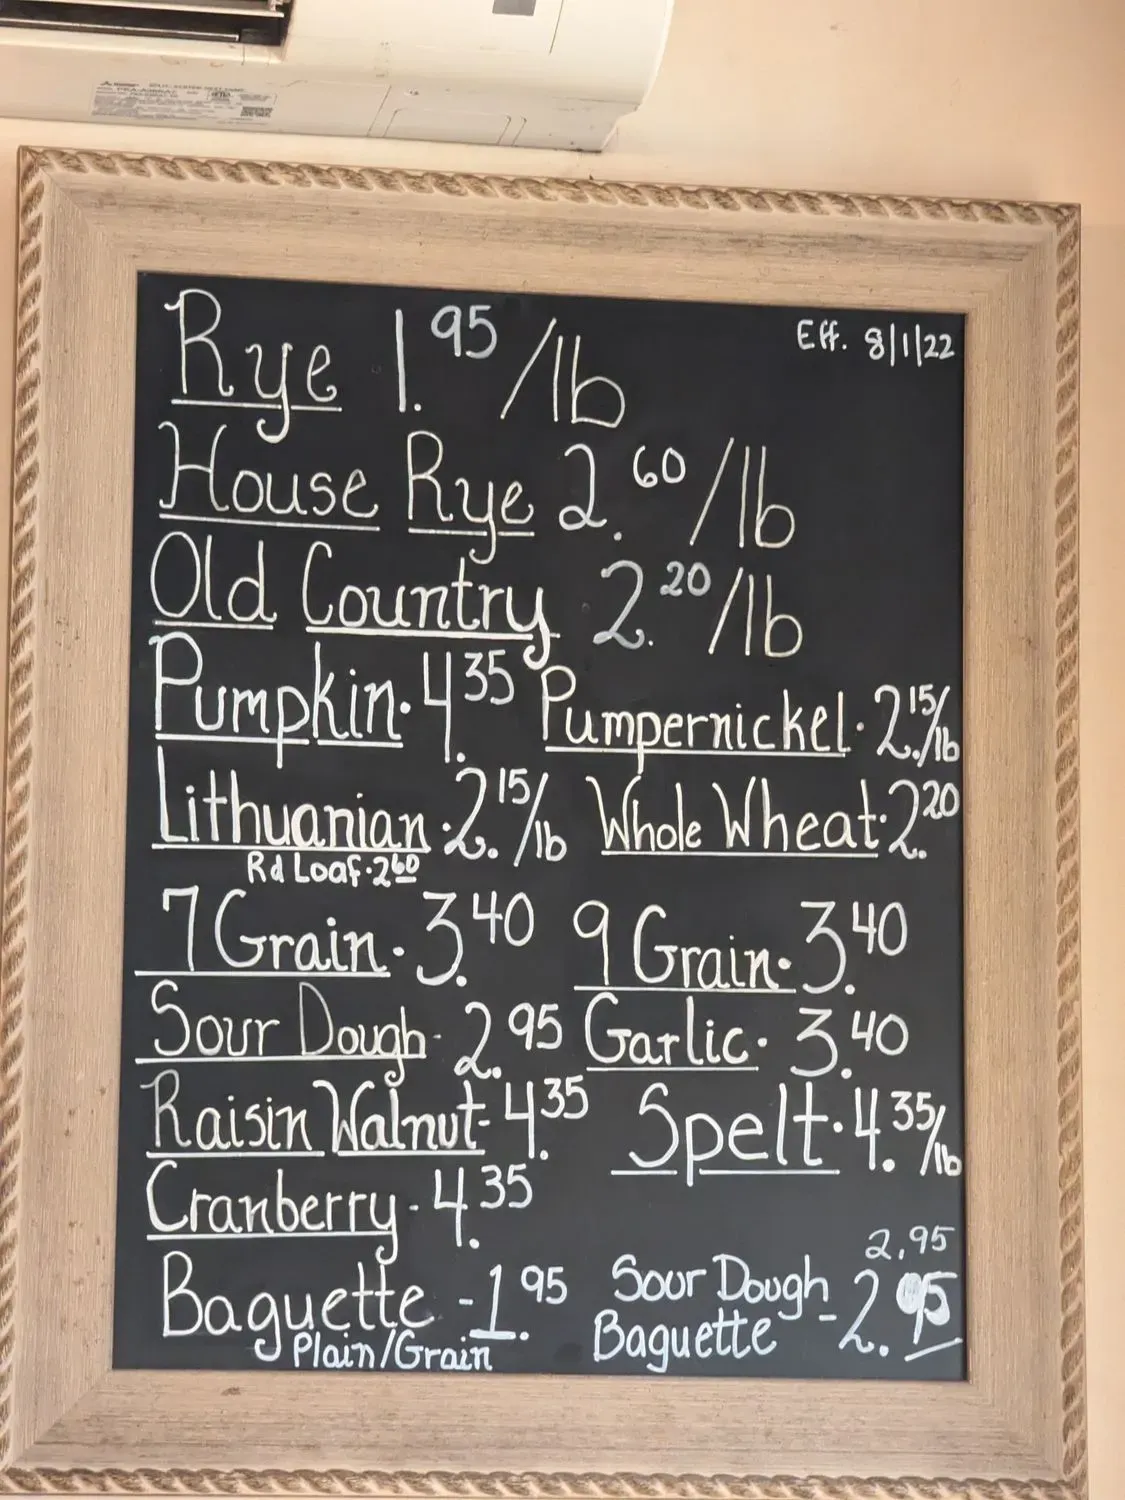 Eff. 8/1/22
Rye 1.95/lb
House Rye 2.60/lb
Old Country 2.20/lb
Pumpkin · 4.35 Pumpernickel · 2.15/lb
Lithuanian · 2.15/lb Whole Wheat · 2.20
Rd Loaf · 2 60
7 Grain · 3.40 9 Grain · 3.40
Sour Dough - 2.95 Garlic · 3.40
Raisin Walnut - 4.35 Spelt · 4.35/lb
Cranberry - 4.35
2.95
Baguette - 1.95 Sour Dough Baguette - 2.95
Plain/Grain